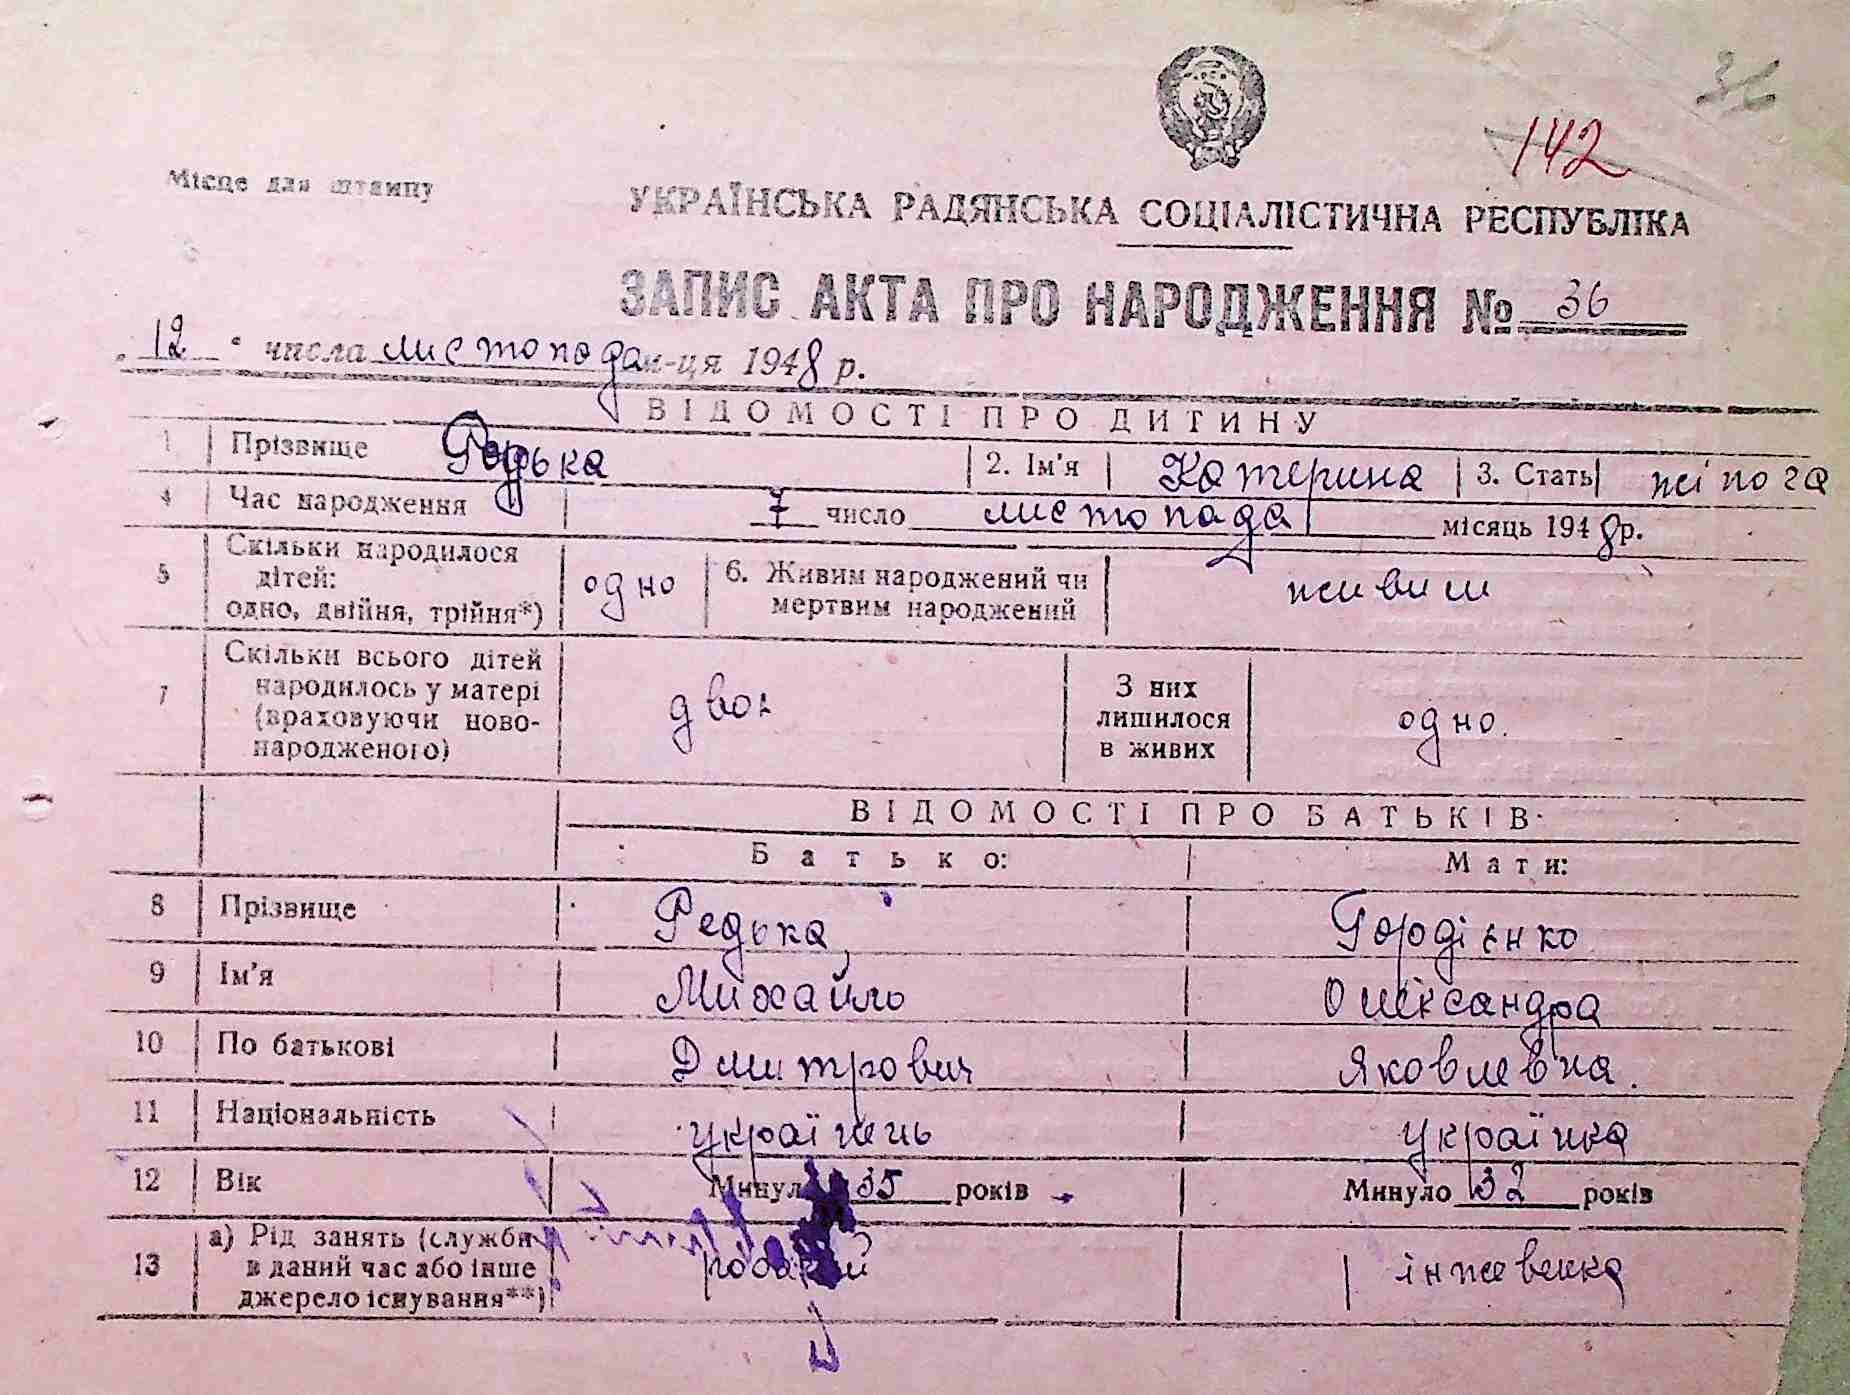 36
142
Місце для штампу
УКРАЇНСЬКА РАДЯНСЬКА СОЦІАЛІСТИЧНА РЕСПУБЛІКА
ЗАПИС АКТА ПРО НАРОДЖЕННЯ № 36
12 числа листопада м-ця 1948 р.
ВІДОМОСТІ ПРО ДИТИНУ
1 Прізвище Редька 2. Ім'я Катерина 3. Стать жіноча
4 Час народження 7 число листопада місяць 1948 р.
5 Скільки народилося дітей: одно, двійня, трійня*) одно 6. Живим народжений чи мертвим народжений живим
7 Скільки всього дітей народилось у матері (враховуючи ново-народженого) двоє З них лишилося в живих одно.
ВІДОМОСТІ ПРО БАТЬКІВ
Батько: Мати:
8 Прізвище Редька Гордієнко
9 Ім'я Михайло Олександра
10 По батькові Дмитрович Яковлевна.
11 Національність українець українка
12 Вік Минуло 35 років Минуло 32 років
13 а) Рід занять (служби в даний час або інше джерело існування**)